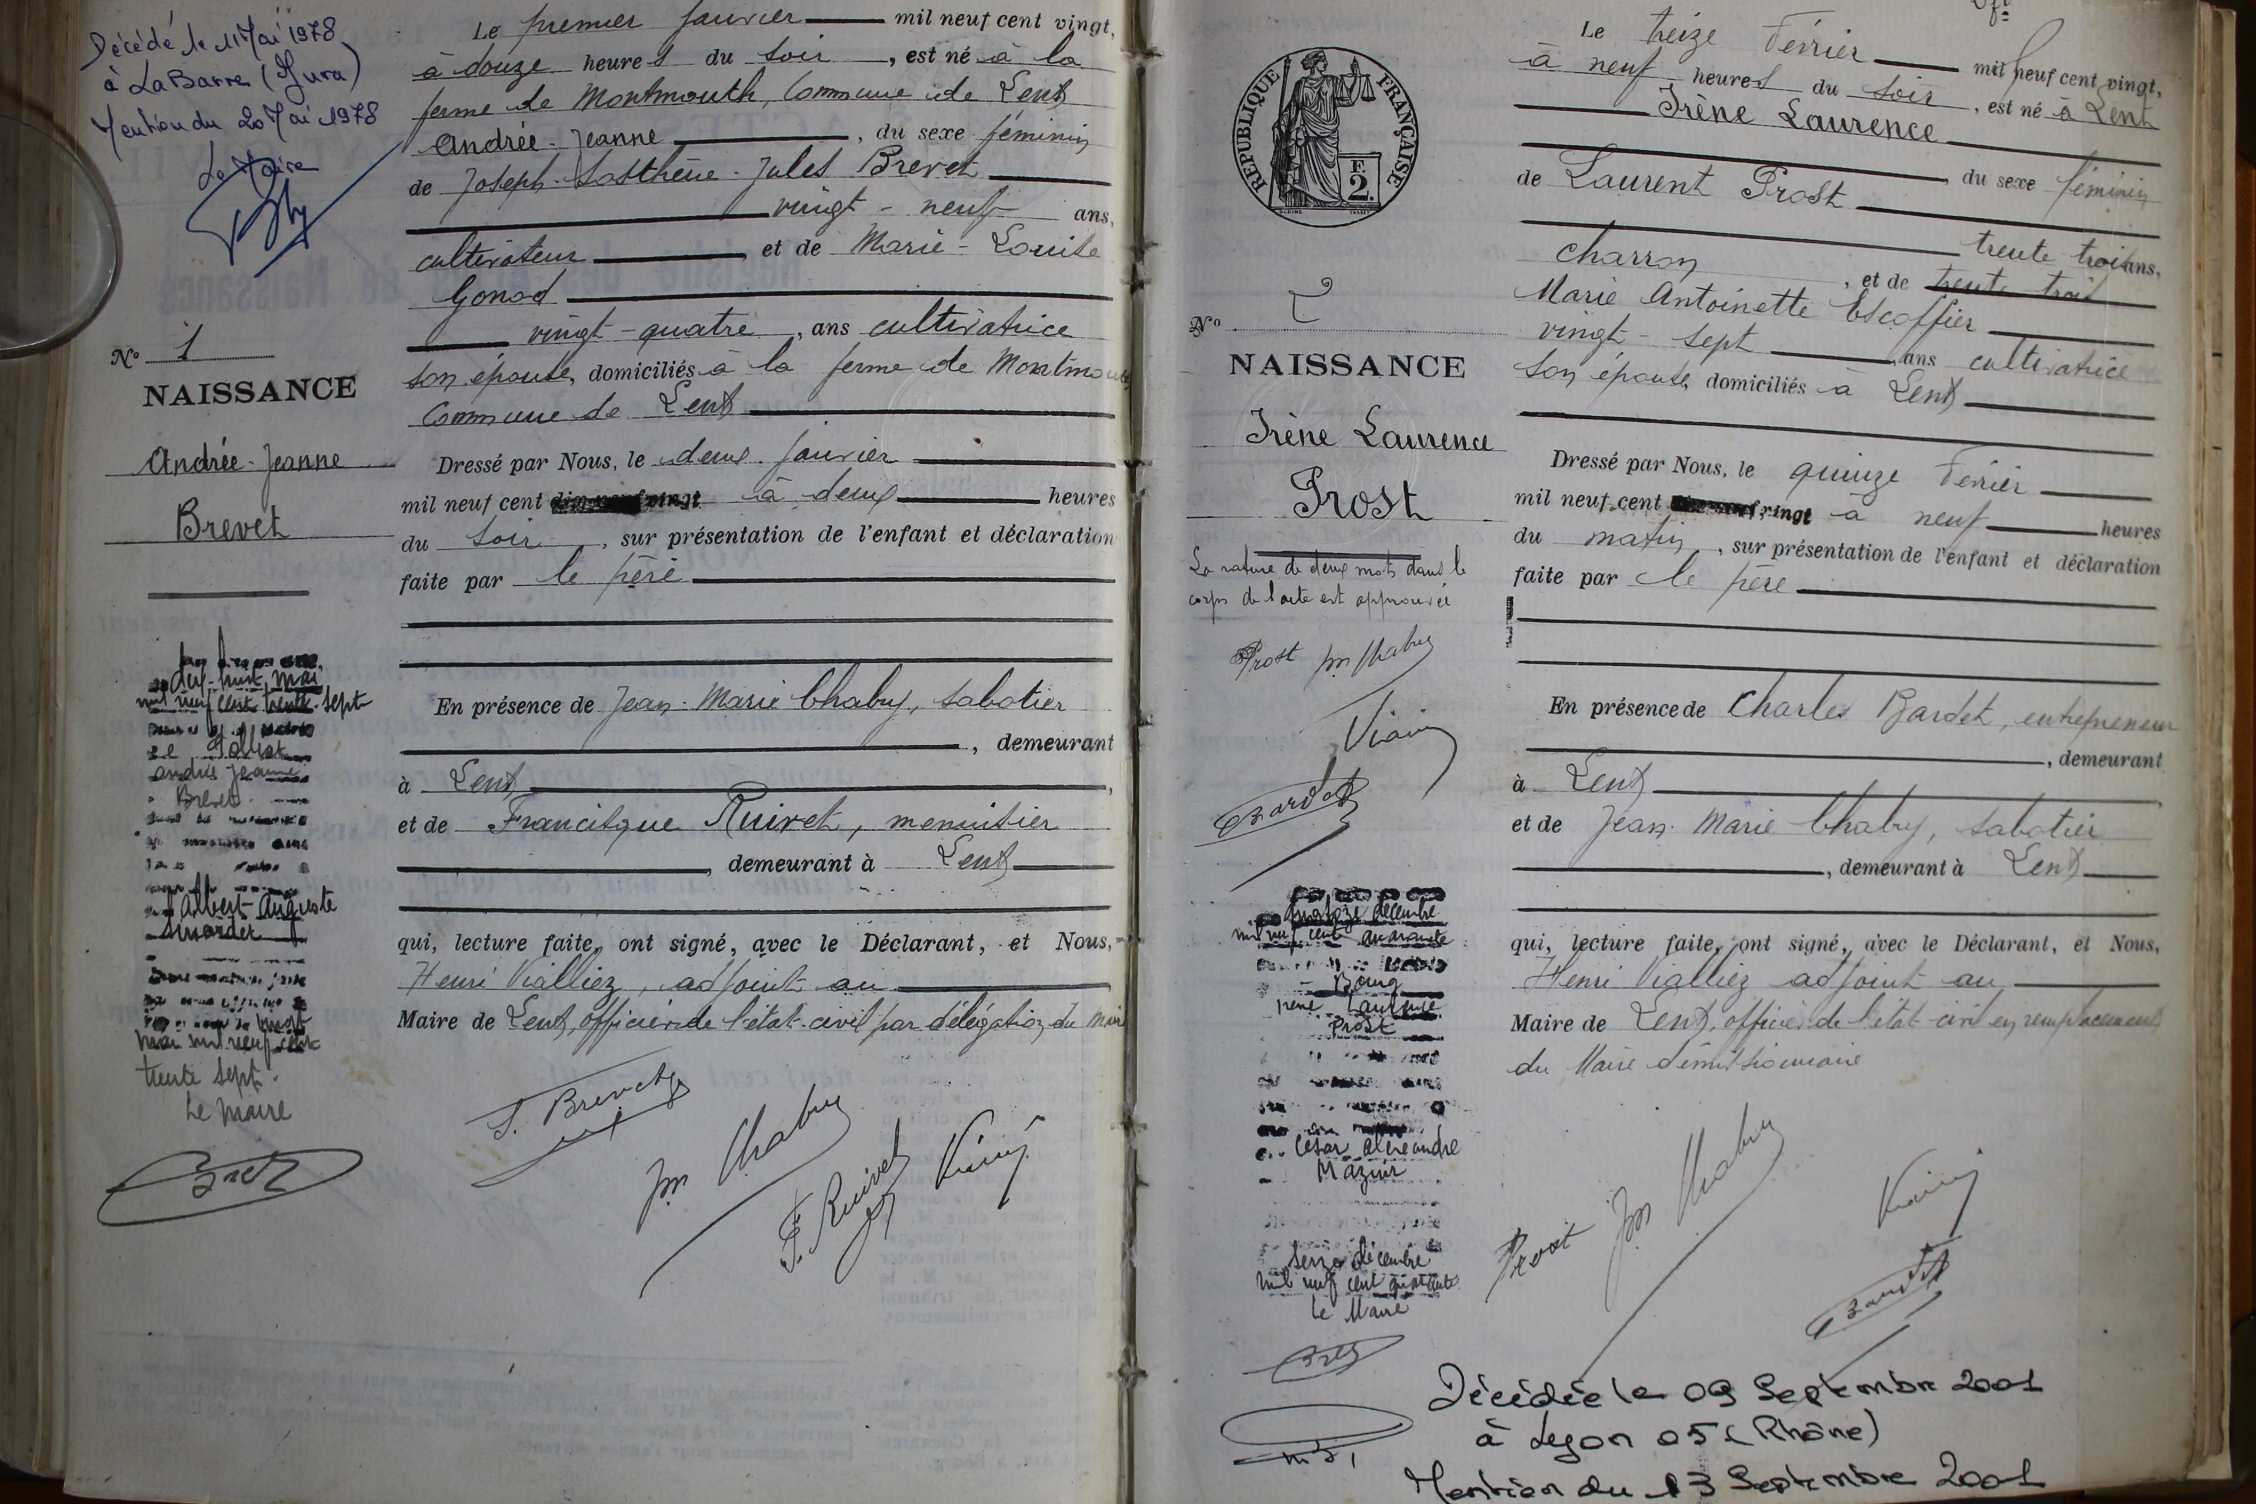 Décédé le 11 Mai 1978
à La Barre (Jura)
Mention du 20 Mai 1978
Le Maire
N° 1
NAISSANCE
Andrée-Jeanne
Brevet
dix-huit mai
mil neuf cent trente-sept
andrée Jeanne
Brevet
albert auguste
mai mil neuf cent
trente sept.
Le Maire
Le premier Janvier mil neuf cent vingt,
à douze heures du soir, est né à la
ferme de Montmouth, Commune de Lent
Andrée-Jeanne, du sexe féminin
de Joseph-Sosthène-Jules Brevet
vingt-neuf ans,
cultivateur et de Marie-Louise
Gonod
vingt-quatre, ans cultivatrice
son épouse, domiciliés à la ferme de Montmouth
Commune de Lent
Dressé par Nous, le deux Janvier
mil neuf cent vingt à deux heures
du soir, sur présentation de l'enfant et déclaration
faite par le père
En présence de Jean-Marie Chabry, sabotier
, demeurant
à Lent,
et de Francisque Ruivet, menuisier
, demeurant à Lent
qui, lecture faite, ont signé, avec le Déclarant, et Nous,
Henri Vialliez, adjoint au
Maire de Lent, officier de l'état-civil par délégation du Maire
J. Brevet
Jm Chabry
F. Ruivet
RÉPUBLIQUE FRANÇAISE
F.
2.
N° 2
NAISSANCE
Irène Laurence
Prost
La rature de deux mots dans le
corps de l'acte est approuvée
Prost Jm Chabry
Bardet
quatorze décembre
mil neuf cent quarante
Bourg
Irène Laurence
Prost
César alexandre
Mazuir
seize décembre
mil neuf cent quarante
Le Maire
Le treize Février mil neuf cent vingt,
à neuf heures du soir, est né à Lent
Irène Laurence
, du sexe féminin
de Laurent Prost
trente trois ans,
charron, et de trente trois
Marie Antoinette Escoffier
vingt-sept ans cultivatrice
son épouse, domiciliés à Lent
Dressé par Nous, le quinze Février
mil neuf cent vingt à neuf heures
du matin, sur présentation de l'enfant et déclaration
faite par le père
En présence de Charles Bardet, entrepreneur
, demeurant
à Lent,
et de Jean-Marie Chabry, sabotier
, demeurant à Lent
qui, lecture faite, ont signé, avec le Déclarant, et Nous,
Henri Vialliez adjoint au
Maire de Lent, officier de l'état-civil en remplacement
du Maire démissionnaire
Prost Jm Chabry
Bardet
Décédée le 09 Septembre 2001
à Lyon 05 (Rhône)
Mention du 13 Septembre 2001